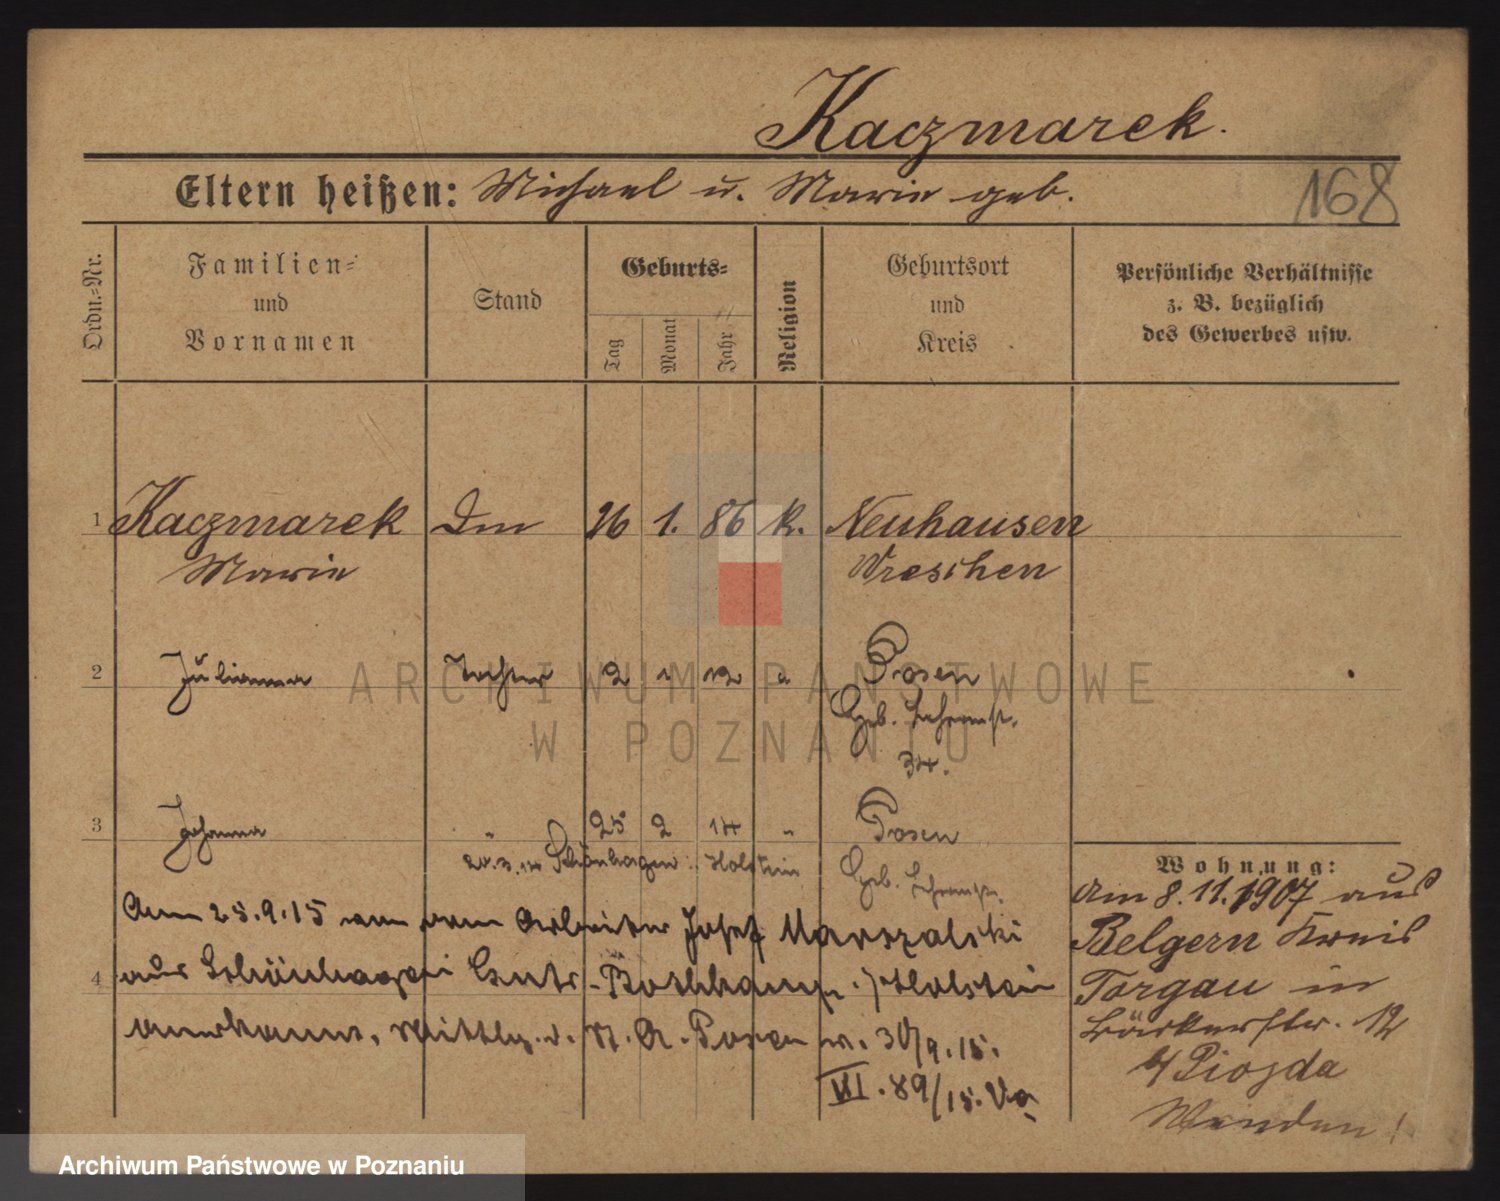 Kaczmarek.
Eltern heißen: Michael u. Marie geb.
168
Ordn.-Nr.
Familien-
und
Vornamen
Stand
Geburts-
Tag
Monat
Jahr
Religion
Geburtsort
und
Kreis
Persönliche Verhältnisse
z. B. bezüglich
des Gewerbes usw.
1 Kaczmarek 26 1. 86 k. Neuhausen
Marie Wreschen
2 Julianna Tochter 2 1 12 " Posen
Geb.
34.
3 Johanna " 25 2 14 " Posen
20.3.14 Schönhagen Holstein Geb.
Wohnung:
Am 25.9.15 von dem Arbeiter Josef Marszalski
4 aus Schönhagen Guts-Bothkamp / Holstein
anerkannt, Mittlg. d. St. A. Posen v. 30/9.15.
VI. 89/15.
Am 8.11.1907 aus
Belgern Kreis
Torgau in
Bäckerstr. 12
b/ Piozda
Wenden!
ARCHIWUM PAŃSTWOWE
W POZNANIU
Archiwum Państwowe w Poznaniu